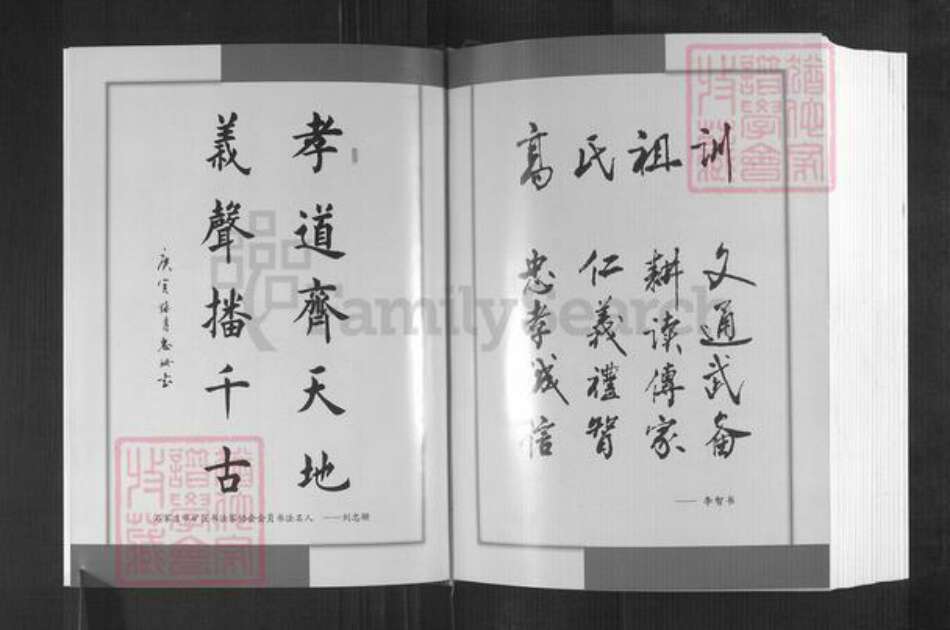 孝道齊天地
義聲播千古
庚寅
石家庄市矿区书法家协会会员书法名人
高氏祖训
忠孝诚信
仁義禮智
耕读傳家
文通武备
—— 李智书
猶他家譜學會收藏
猶他家譜學會收藏
FamilySearch